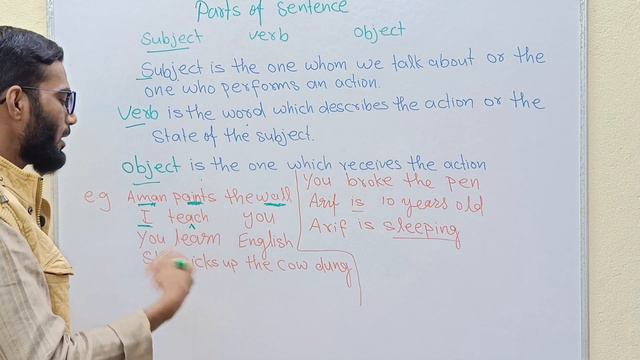 Parts of Sentence
Subject verb object
Subject is the one whom we talk about or the
one who performs an action.
Verb is the word which describes the action or the
State of the subject.
Object is the one which receives the action
e.g Aman paints the wall
I teach you
You learn English
picks up the cow dung
You broke the pen
Arif is 10 years old
Arif is sleeping